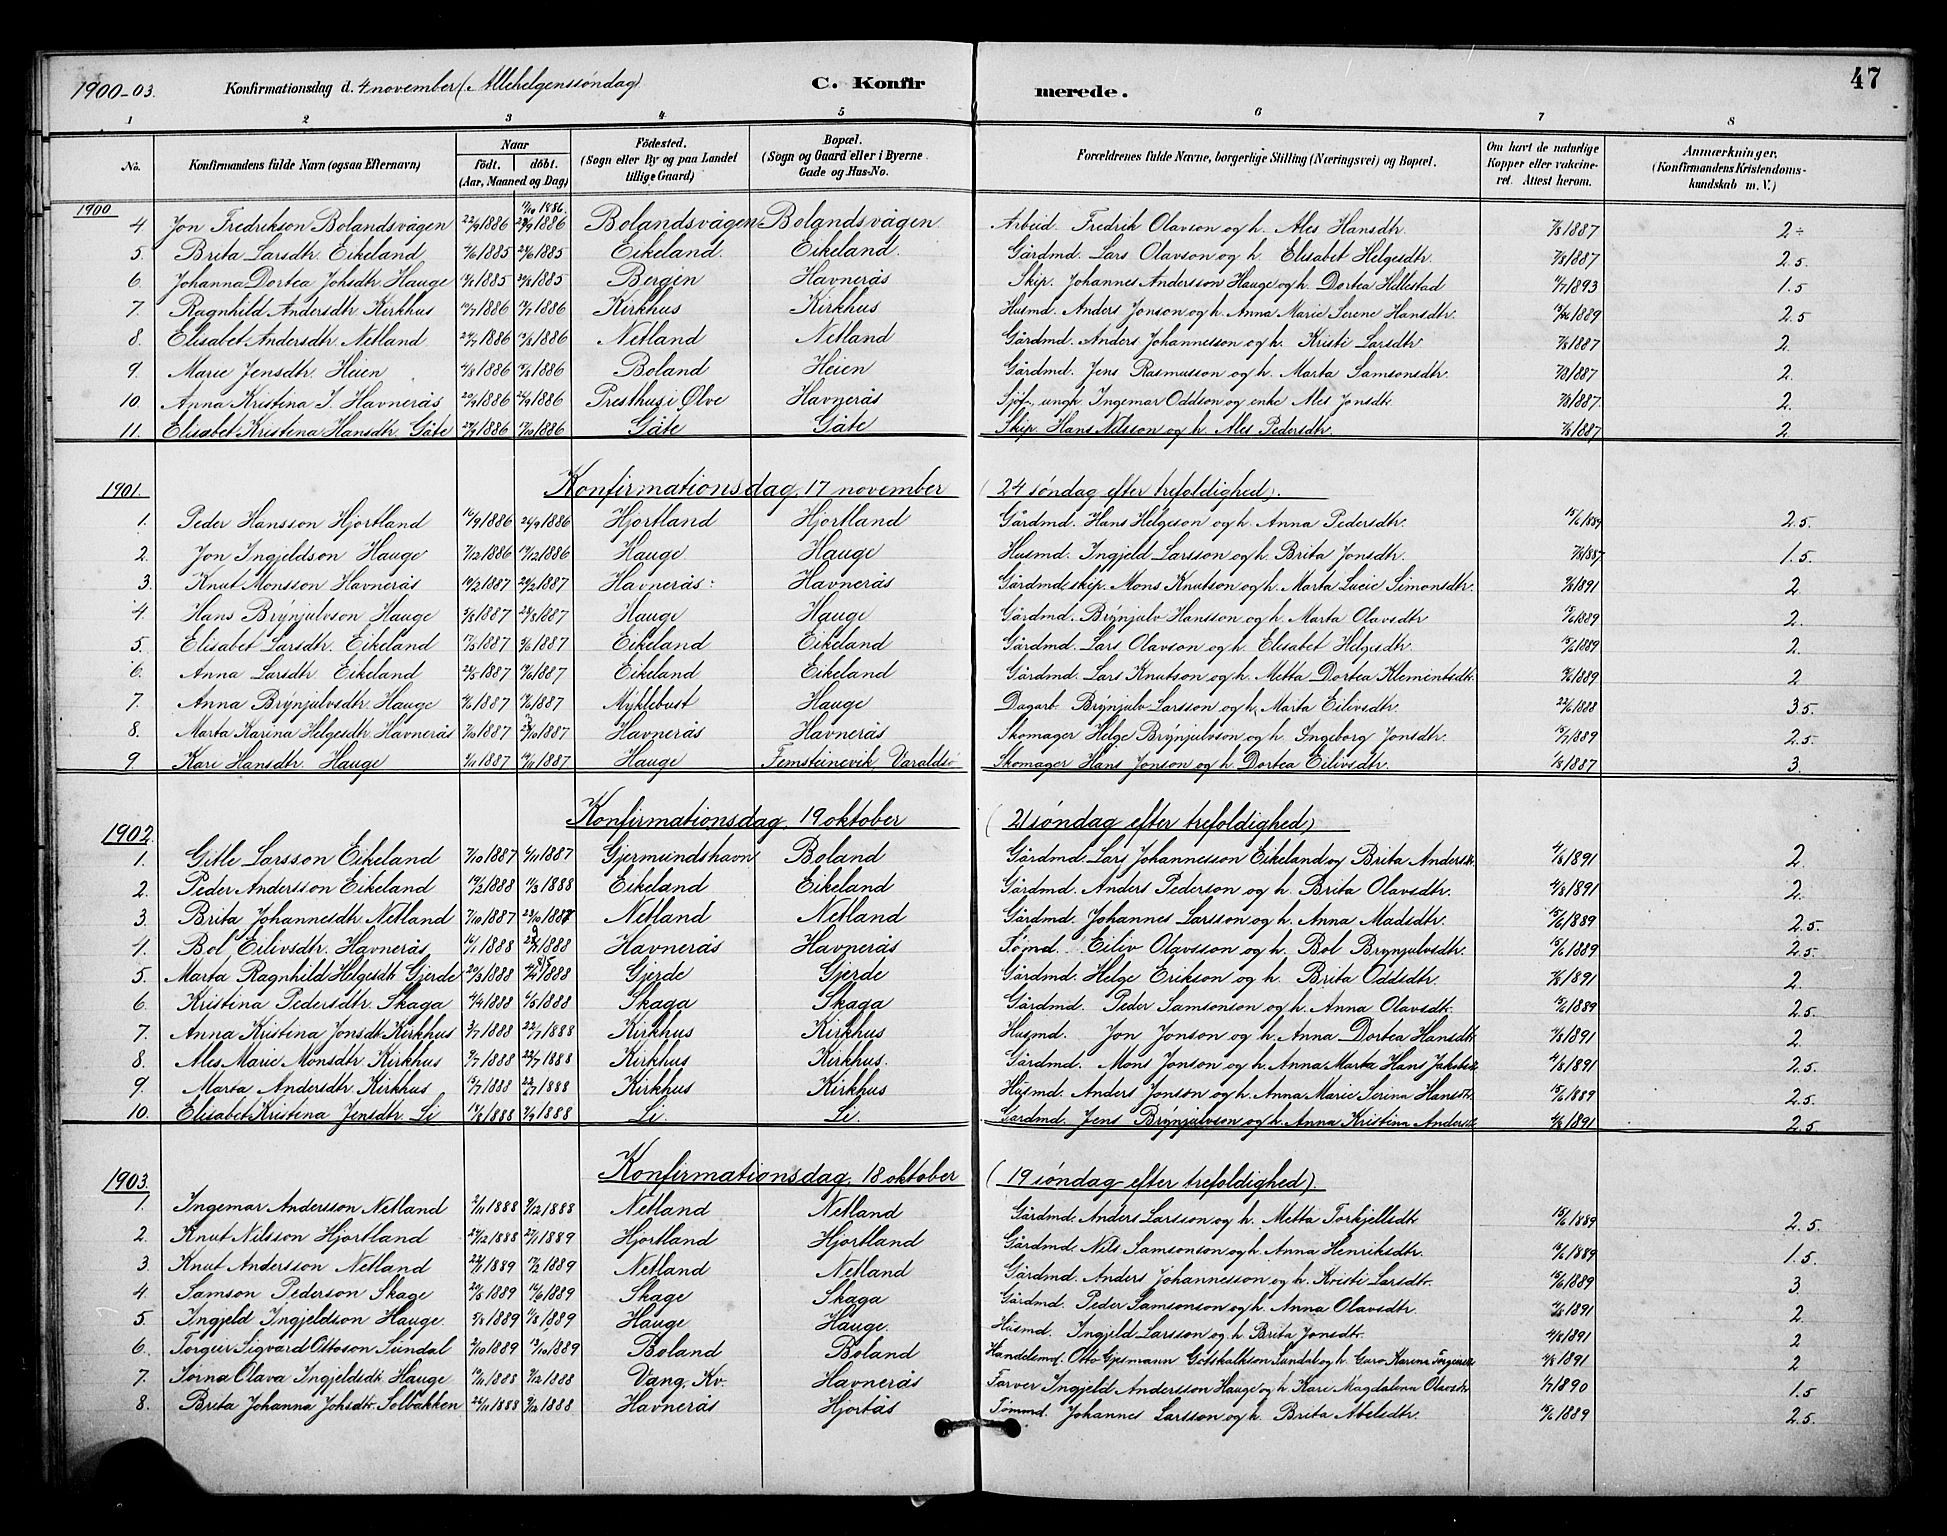 1900-03. Konfirmationsdag d. 4 november (Allehelgenssøndag) C. Konfirmerede. 47
1 2 3 4 5 6 7 8
No. Konfirmandens fulde Navn (ogsaa Efternavn) Naar født. døbt. (Aar, Maaned og Dag) Fødested. (Sogn eller By og paa Landet tillige Gaard) Bopæl. (Sogn og Gaard eller i Byerne Gade og Hus-No. Forældrenes fulde Navne, borgerlige Stilling (Næringsvei) og Bopæl. Om havt de naturlige Kopper eller vakcineret. Attest herom. Anmærkninger, (Konfirmandens Kristendomskundskab m. V.)
1900
4 Jon Fredrikson Bolandsvågen 22/9 1886 1886 Bolandsvågen Bolandsvågen Arbeid. Fredrik Olavson og h. Ales Hansdtr. 7/8 1887 2÷
5. Brita Larsdtr. Eikeland 1885 1885 Eikeland. Eikeland. Gårdmd. Lars Olavson og h. Elisabet Helgesdtr. 7/8 1887 2.5.
6. Johanna Dortea Johsdtr. Hauge 1885 1885 Bergen Havnerås Skip. Johannes Andersson Hauge og h. Dortea Hillestad 1893 1.5
7. Ragnhild Andersdtr. Kirkhus 1886 1886 Kirkhus Kirkhus Husmd. Anders Jonson og h. Anna Marie Serene Hansdtr. 1889 2.5
8. Elisabet Andersdtr. Netland 1886 1886 Netland Netland Gårdmd. Anders Johannesson og h. Kristi Larsdtr 7/8 1887 2.
9. Marie Jensdtr. Heien 1886 1886 Boland Heien Gårdmd. Jens Rasmusson og h. Marta Samsonsdtr. 7/8 1887 2.
10. Anna Kristina I. Havnerås 20/9 1886 26/9 1886 Presthus i Ølve Havnerås Sjøf., ungk. Ingemar Oddson og enke Ales Jonsdtr. 7/8 1887. 2.
11. Elisabet Kristina Hansdtr. Gåte 1886 1886 Gåte Gåte Skip. Hans Nilsson og h. Ales Pedersdtr. 7/8 1887 2.
1901. Konfirmationsdag, 17 november (24 søndag efter trefoldighed).
1. Peder Hansson Hjortland 16/9 1886 26/9 1886 Hjortland Hjortland Gårdmd. Hans Helgeson og h. Anna Pedersdtr. 15/6 1889 2.5.
2. Jon Ingjeldson Hauge 7/12 1886 19/12 1886 Hauge Hauge Husmd. Ingjeld Larsson og h. Brita Jonsdtr. 7/8 1887 1.5.
3. Knut Monsson Havnerås 1887 1887 Havnerås. Havnerås Gårdmd. skip. Mons Knutson og h. Marta Lucie Simonsdtr. 1891 2
4. Hans Brynjulvson Hauge 1887 1887 Hauge Hauge Gårdmd. Brynjulv Hansson og h. Marta Olavsdtr 15/6 1889 2.
5. Elisabet Larsdtr. Eikeland 1887 1887 Eikeland Eikeland Gårdmd. Lars Olavson og h. Elisabet Helgesdtr. 15/6 1889 2.
6. Anna Larsdtr. Eikeland 1887 1887 Eikeland Eikeland Gårdmd. Lars Knutson og h. Metta Dortea Klementsdtr. 15/6 1889 2
7. Anna Brynjulvsdtr. Hauge 1887 1887 Myklebust Hauge Dagarb. Brynjulv Larsson og h. Marta Eilivsdtr. 22/6 1888 3.5.
8. Marta Karina Helgesdtr. Havnerås 1887 1887 Havnerås Havnerås Skomager Helge Brynjulvson og h. Ingeborg Jonsdtr. 1889 2.5.
9. Kari Hansdtr. Hauge 1887 1887 Hauge Femsteinevik, Varaldsö Skomager Hans Jonson og h. Dortea Eilivsdtr. 1887 3.
1902. Konfirmationsdag, 19 oktober (21 søndag efter trefoldighed)
1. Gitle Larsson Eikeland 7/10 1887 1887 Gjermundshavn Boland Gårdmd. Lars Johannesson Eikeland og Brita Andersdtr. 4/8 1891 2.
2. Peder Andersson Eikeland 1888 1888 Eikeland Eikeland Gårdmd. Anders Pederson og h. Brita Olavsdtr. 4/8 1891 2.
3. Brita Johannesdtr. Netland 7/10 1887 23/10 1887 Netland Netland Gårdmd. Johannes Larsson og h. Anna Madsdtr. 15/6 1889 2.5.
4. Bol Eilivsdtr. Havnerås 1888 1888 Havnerås Havnerås Tømd. Eiliv Olavsson og h. Bol Brynjulvsdtr. 15/6 1889 2.5.
5. Marta Ragnhild Helgesdtr. Gjerde 1888 1888 Gjerde Gjerde Gårdmd. Helge Erikson og h. Brita Oddsdtr. 1891 2.
6. Kristina Pedersdtr. Skaga 1888 1888 Skaga Skaga Gårdmd. Peder Samsonson og h. Anna Olavsdtr. 15/6 1889 2.5.
7. Anna Kristina Jonsdtr. Kirkhus 3/7 1888 22/7 1888 Kirkhus Kirkhus Husmd. Jon Jonson og h. Anna Dortea Hansdtr. 1891 2.
8. Ales Marie Monsdtr. Kirkhus 9/7 1888 22/7 1888 Kirkhus Kirkhus. Gårdmd. Mons Jonson og h. Anna Marta Hans Jakobsdtr. 4/8 1891 2.5.
9. Marta Andersdtr. Kirkhus 1888 22/7 1888 Kirkhus Kirkhus Husmd. Anders Jonson og h. Anna Marie Serina Hansdtr. 15/6 1889 2.5.
10. Elisabet Kristina Jensdtr. Li 1888 1888 Li. Li. Gårdmd. Jens Brynjulvson og h. Anna Kristina Andersdtr. 4/8 1891 2.5.
1903. Konfirmationsdag, 18 oktober (19 søndag efter trefoldighed).
1. Ingemar Andersson Netland 2/11 1888 9/12 1888 Netland Netland Gårdmd. Anders Larsson og h. Metta Torkjellsdtr 15/6 1889 2.5.
2. Knut Nilsson Hjortland 1888 1889 Hjortland Hjortland Gårdmd. Nils Samsonson og h. Anna Henriksdtr. 15/6 1889 1.5.
3. Knut Andersson Netland 1889 1889 Netland Netland Gårdmd. Anders Johannesson og h. Kristi Larsdtr. 15/6 1889 3.
4. Samson Pederson Skage 1889 1889 Skage Skaga Gårdmd. Peder Samsonson og h. Anna Olavsdtr. 1891 2.
5. Ingjeld Ingjeldson Hauge. 1889 1889 Hauge Hauge. Husmd. Ingjeld Larsson og h. Brita Jonsdtr. 4/8 1891 2
6. Torgeir Sigvard Ottoson Sundal 2/10 1889 13/10 1889 Boland Boland Handelsmd. Otto Gjesmann Gotskalkson Sundal og h. Guro Karina Torgeirsdtr. 4/8 1891 2
7. Jorna Olava Ingjeldsdtr. Hauge 1888 1888 Vang, Kv. Havnerås Farver Ingjeld Andersson Hauge og h. Kari Magdalena Olavsdtr 1890 1.5
8. Brita Johanna Johsdtr. Solbakken 1888 9/12 1888 Havnerås Hjortås Tømmd. Johannes Larsson og h. Brita Abelsdtr. 15/6 1889 2.5.